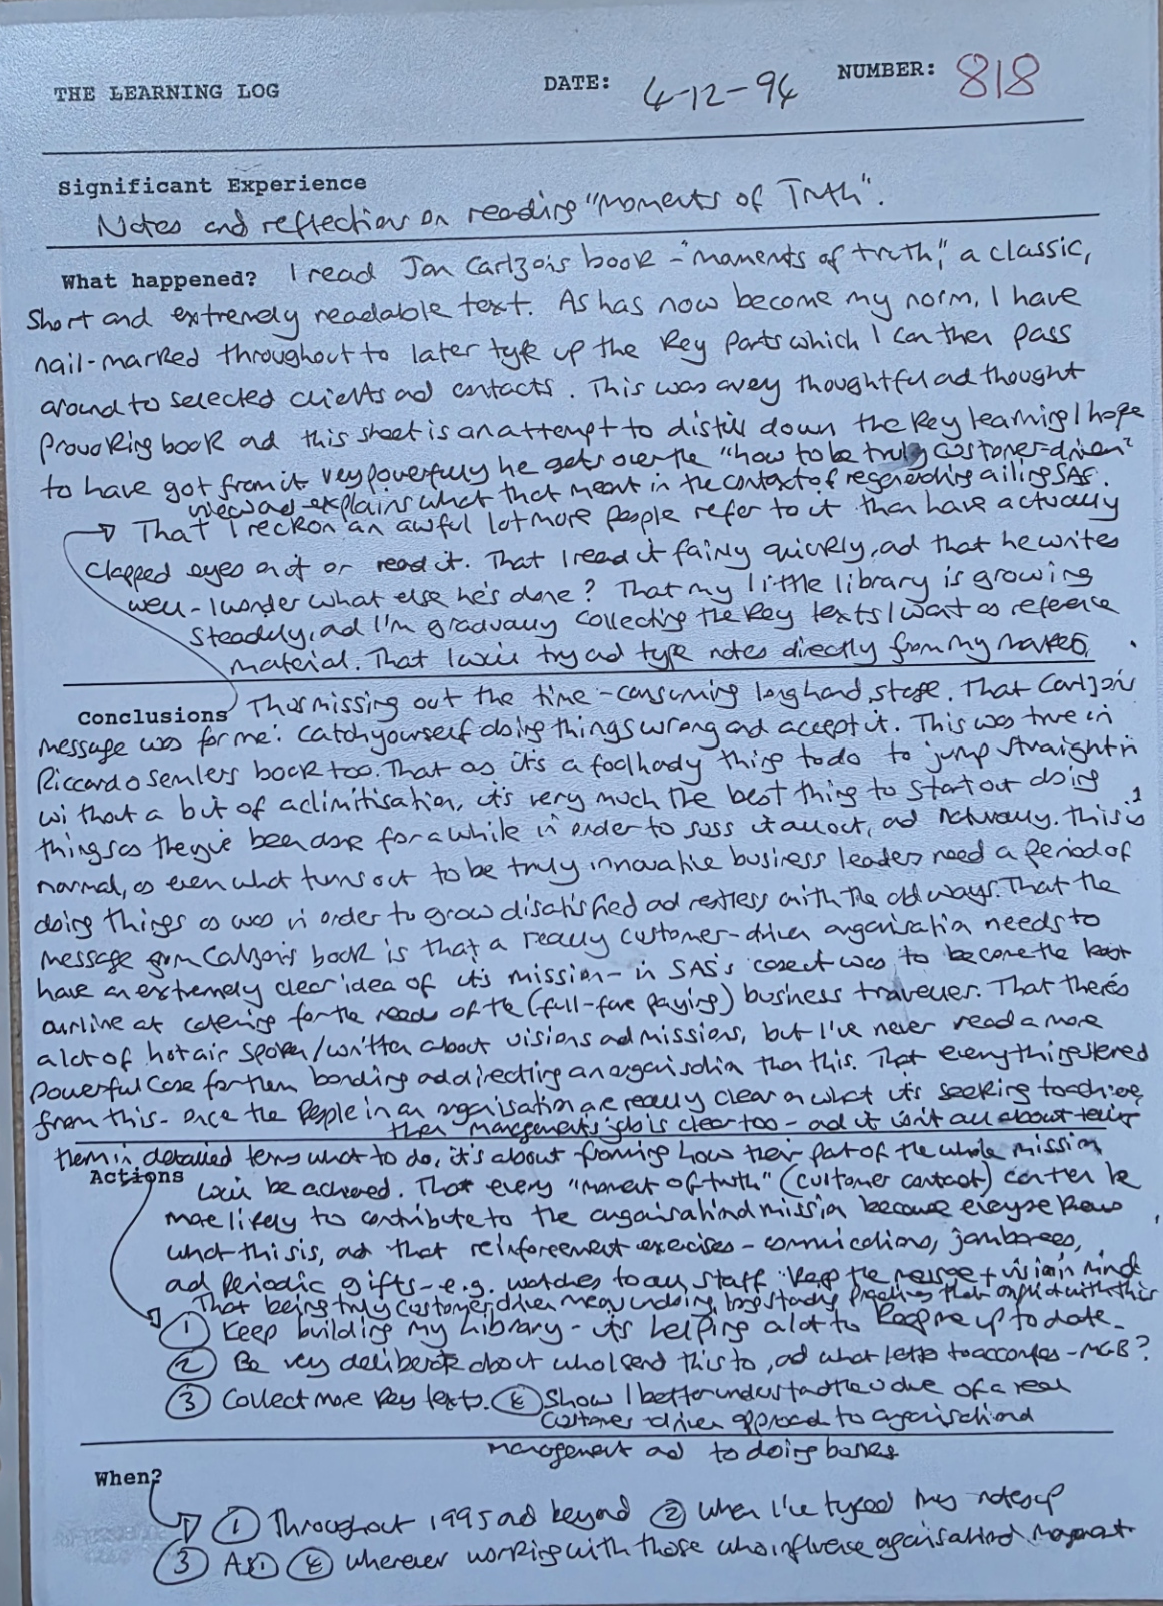 THE LEARNING LOG DATE: 4-12-94 NUMBER: 818
Significant Experience
Notes and reflection on reading "Moments of Truth".
What happened? I read Jan Carlzon's book - "moments of truth", a classic,
short and extremely readable text. As has now become my norm, I have
nail-marked throughout to later type up the key parts which I can then pass
around to selected clients and contacts. This was a very thoughtful and thought
provoking book and this sheet is an attempt to distill down the key learning I hope
to have got from it very powerfully he gets over the "how to be truly customer-driven"
view and explains what that meant in the context of regenerating ailing SAS.
That I reckon an awful lot more people refer to it than have actually
clapped eyes on it or read it. That I read it fairly quickly, and that he writes
well - I wonder what else he's done? That my little library is growing
steadily, and I'm gradually collecting the key texts I want as reference
material. That I will try and type notes directly from my marked,
Conclusions Thus missing out the time-consuming longhand, stage. That Carlzon's
message was for me: catch yourself doing things wrong and accept it. This was true in
Riccardo Semlers book too. That as it's a foolhardy thing to do to jump straight in
without a bit of aclimitisation, it's very much the best thing to start out doing
things as they've been done for a while in order to suss it all out, and naturally. This is
normal, as even what turns out to be truly innovative business leaders need a period of
doing things as was in order to grow disatisfied and restless with the old ways. That the
message from Calzon's book is that a really customer-driven organisation needs to
have an extremely clear idea of it's mission - in SAS's case it was to become the best
airline at catering for the needs of the (full-fare paying) business traveller. That there's
a lot of hot air spoken/written about visions and missions, but I've never read a more
powerful case for them bonding and directing an organisation than this. That everything stered
from this - once the people in an organisation are really clear on what it's seeking to achieve,
then management's job is clear too - and it isn't all about telling
them in detailed terms what to do, it's about framing how their part of the whole mission
Actions will be achieved. That every "moment of truth" (customer contact) can then be
more likely to contribute to the organisational mission because everyone knows
what this is, and that reinforcement exercises - communications, jamborees,
and periodic gifts - e.g. watches to all staff keep the message + vision in mind
That being truly customer driven means undoing long standing practices that conflict with this
① Keep building my library - its helping a lot to keep me up to date.
② Be very deliberate about who I send this to, and what letter to accompany - MGB?
③ Collect more key texts. ④ Show I better understand the value of a real
customer-driven approach to organisational
management and to doing business
When?
① Throughout 1995 and beyond ② When I've typed my notes up
③ As ① ④ wherever working with those who influence organisational management